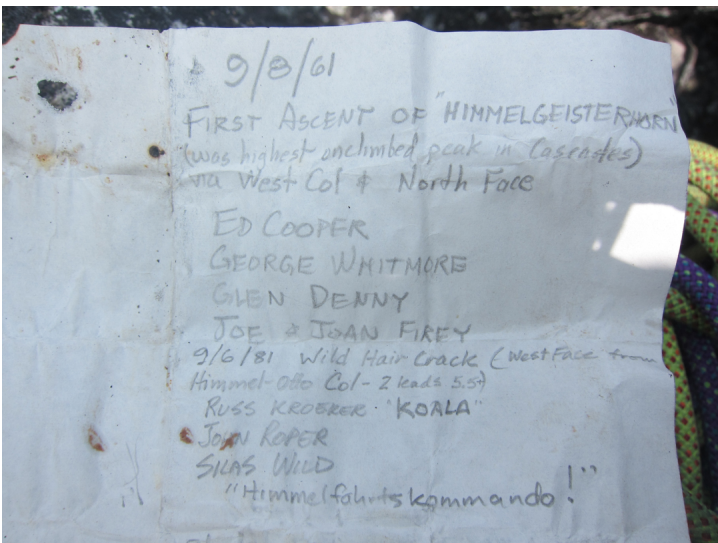 9/8/61
FIRST ASCENT OF "HIMMELGEISTERHORN"
(was highest unclimbed peak in Cascades)
via West Col & North Face
ED COOPER
GEORGE WHITMORE
GLEN DENNY
JOE & JOAN FIREY
9/6/81 Wild Hair Crack (West Face from
Himmel-Otto Col - 2 leads 5.5+)
RUSS KROEKER "KOALA"
JOHN ROPER
SILAS WILD
"Himmelfahrtskommando!"